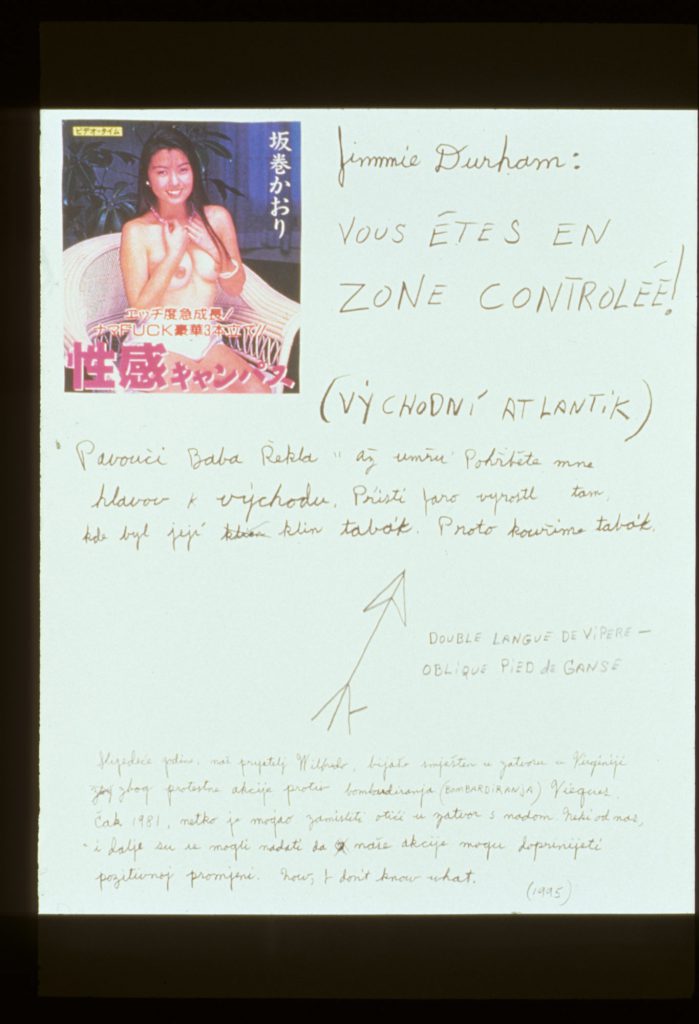 ビデオ・タイム
坂巻かおり
エッチ度急成長!
ナマFUCK豪華3本立て!!
性感キャンパス
Jimmie Durham:
VOUS ÉTES EN
ZONE CONTROLEÉ!
(VÝCHODNÍ ATLANTIK)
Pavoučí Baba Řekla " až umřu Pohřběte mne
hlavou k východu. Přístí Jaro vyrostl tam,
kde byl její klin tabák. Proto kouříme tabák.
DOUBLE LANGUE DE VIPERE —
OBLIQUE PIED de GANSE
Slijedeće godine, naš prijatelj Wilfredo, bijaše smješten u zatvoru u Virginiji
zbog protestne akcije protiv bombardiranja (BOMBARDIRANJA) Vieques.
Čak 1981, netko je mogao zamisliti otići u zatvor s nadom. Neki od nas,
i dalje su se mogli nadati da naše akcije mogu doprinijeti
pozitivnoj promjeni. Now, I don't know what.
(1995)